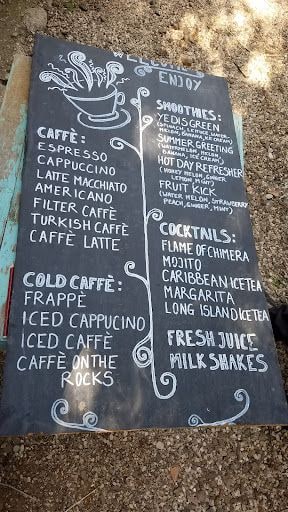 WELCOME
ENJOY
CAFFÈ:
ESPRESSO
CAPPUCCINO
LATTE MACCHIATO
AMERICANO
FILTER CAFFÈ
TURKISH CAFFÈ
CAFFÈ LATTE
COLD CAFFÈ:
FRAPPÈ
ICED CAPPUCINO
ICED CAFFÈ
CAFFÈ ON THE
ROCKS
SMOOTHIES:
YEDISGREEN
(SPINACH, LETTUCE, WATER-
MELON, BANANA, ICE CREAM)
SUMMER GREETING
(WATERMELON,
BANANA, ICE CREAM)
HOT DAY REFRESHER
(HONEY MELON, GINGER
LEMON, MINT)
FRUIT KICK
(WATER MELON, STRAWBERRY
PEACH, GINGER, MINT)
COCKTAILS:
FLAME OF CHIMERA
MOJITO
CARIBBEAN ICETEA
MARGARITA
LONG ISLAND ICETEA
FRESH JUICE
MILKSHAKES